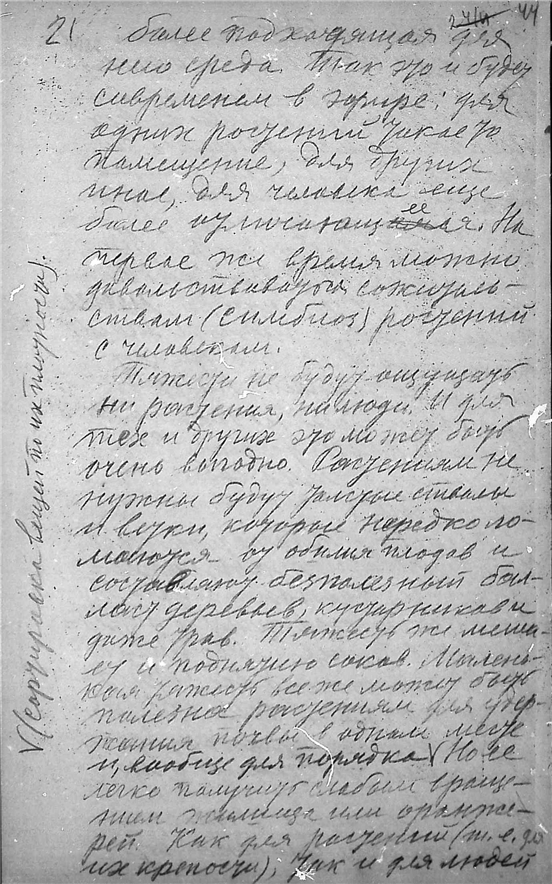 21
44
более подходящая для
него среда. Так это и будет
современем в эфире: для
одних растений такое то
помещение, для других
иное, для человека еще
более отличающееся. На
первое же время можно
довольствоваться сожитель-
ством (симбиоз) растений
с человеком.
Тяжести не будут ощущать
ни растения, ни люди. И для
тех и других это может быть
очень выгодно. Растениям не
нужны будут толстые стволы
и ветки, которые нередко ло-
маются от обилия плодов и
составляют бесполезный бал-
ласт деревьев, кустарников и
даже трав. Тяжесть же меша-
ет и поднятию соков. Малень-
кая тяжесть все же может быть
полезна растениям для удер-
жания почвы в одном месте
и, вообще для порядка V Но ее
легко получить слабым враще-
нием жилища или оранже-
рей. Как для растений (т. е. для
их крепости), так и для людей
V (сортировка вещей по их плотности).